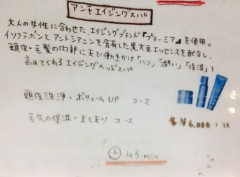 アンチエイジングスパ
大人の女性に合わせた、エイジングブランド『プラーミア』を使用。
イソフラボンとアントシアニンを含有した黒大豆エッセンスを配合し、
頭皮・毛髪の内部にまで働きかけ「ハリ」「潤い」「復活」
させてくれるエイジングヘッドスパ
頭皮洗浄・ボリュームUP コース
毛先の保湿・まとまり コース
¥6,000
45 min